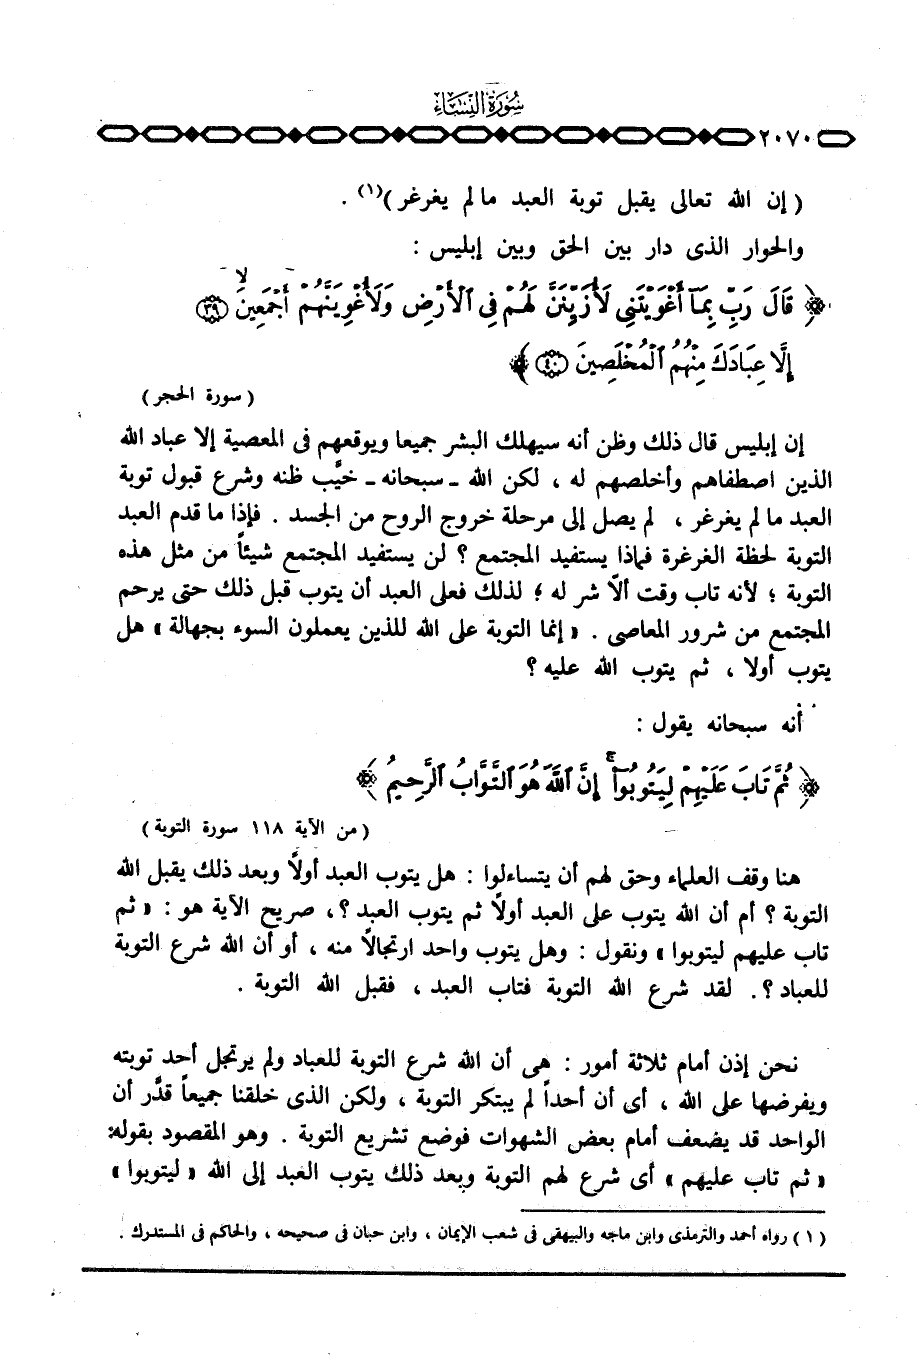 سُورَةُ النِّسَاءِ
٢٠٧٠
( إن الله تعالى يقبل توبة العبد ما لم يغرغر )(١) .
والحوار الذى دار بين الحق وبين إبليس :
﴿ قَالَ رَبِّ بِمَآ أَغْوَيْتَنِي لَأُزَيِّنَنَّ لَهُمْ فِي ٱلْأَرْضِ وَلَأُغْوِيَنَّهُمْ أَجْمَعِينَ ۙ (٣٩)
إِلَّا عِبَادَكَ مِنْهُمُ ٱلْمُخْلَصِينَ (٤٠) ﴾
( سورة الحجر )
إن إبليس قال ذلك وظن أنه سيهلك البشر جميعا ويوقعهم فى المعصية إلا عباد الله
الذين اصطفاهم وأخلصهم له ، لكن الله ـ سبحانه ـ خيَّب ظنه وشرع قبول توبة
العبد ما لم يغرغر ، لم يصل إلى مرحلة خروج الروح من الجسد . فإذا ما قدم العبد
التوبة لحظة الغرغرة فماذا يستفيد المجتمع ؟ لن يستفيد المجتمع شيئاً من مثل هذه
التوبة ؛ لأنه تاب وقت ألاّ شر له ؛ لذلك فعلى العبد أن يتوب قبل ذلك حتى يرحم
المجتمع من شرور المعاصى . « إنما التوبة على الله للذين يعملون السوء بجهالة » هل
يتوب أولا ، ثم يتوب الله عليه ؟
أنه سبحانه يقول :
﴿ ثُمَّ تَابَ عَلَيْهِمْ لِيَتُوبُوٓاْ ۚ إِنَّ ٱللَّهَ هُوَ ٱلتَّوَّابُ ٱلرَّحِيمُ ﴾
( من الآية ١١٨ سورة التوبة )
هنا وقف العلماء وحق لهم أن يتساءلوا : هل يتوب العبد أولاً وبعد ذلك يقبل الله
التوبة ؟ أم أن الله يتوب على العبد أولاً ثم يتوب العبد ؟، صريح الآية هو : « ثم
تاب عليهم ليتوبوا » ونقول : وهل يتوب واحد ارتجالاً منه ، أو أن الله شرع التوبة
للعباد ؟. لقد شرع الله التوبة فتاب العبد ، فقبل الله التوبة .
نحن إذن أمام ثلاثة أمور : هى أن الله شرع التوبة للعباد ولم يرتجل أحد توبته
ويفرضها على الله ، أى أن أحداً لم يبتكر التوبة ، ولكن الذى خلقنا جميعاً قدَّر أن
الواحد قد يضعف أمام بعض الشهوات فوضع تشريع التوبة . وهو المقصود بقوله:
« ثم تاب عليهم » أى شرع لهم التوبة وبعد ذلك يتوب العبد إلى الله « ليتوبوا »
( ١ ) رواه أحمد والترمذى وابن ماجه والبيهقى فى شعب الإيمان ، وابن حبان فى صحيحه ، والحاكم فى المستدرك .